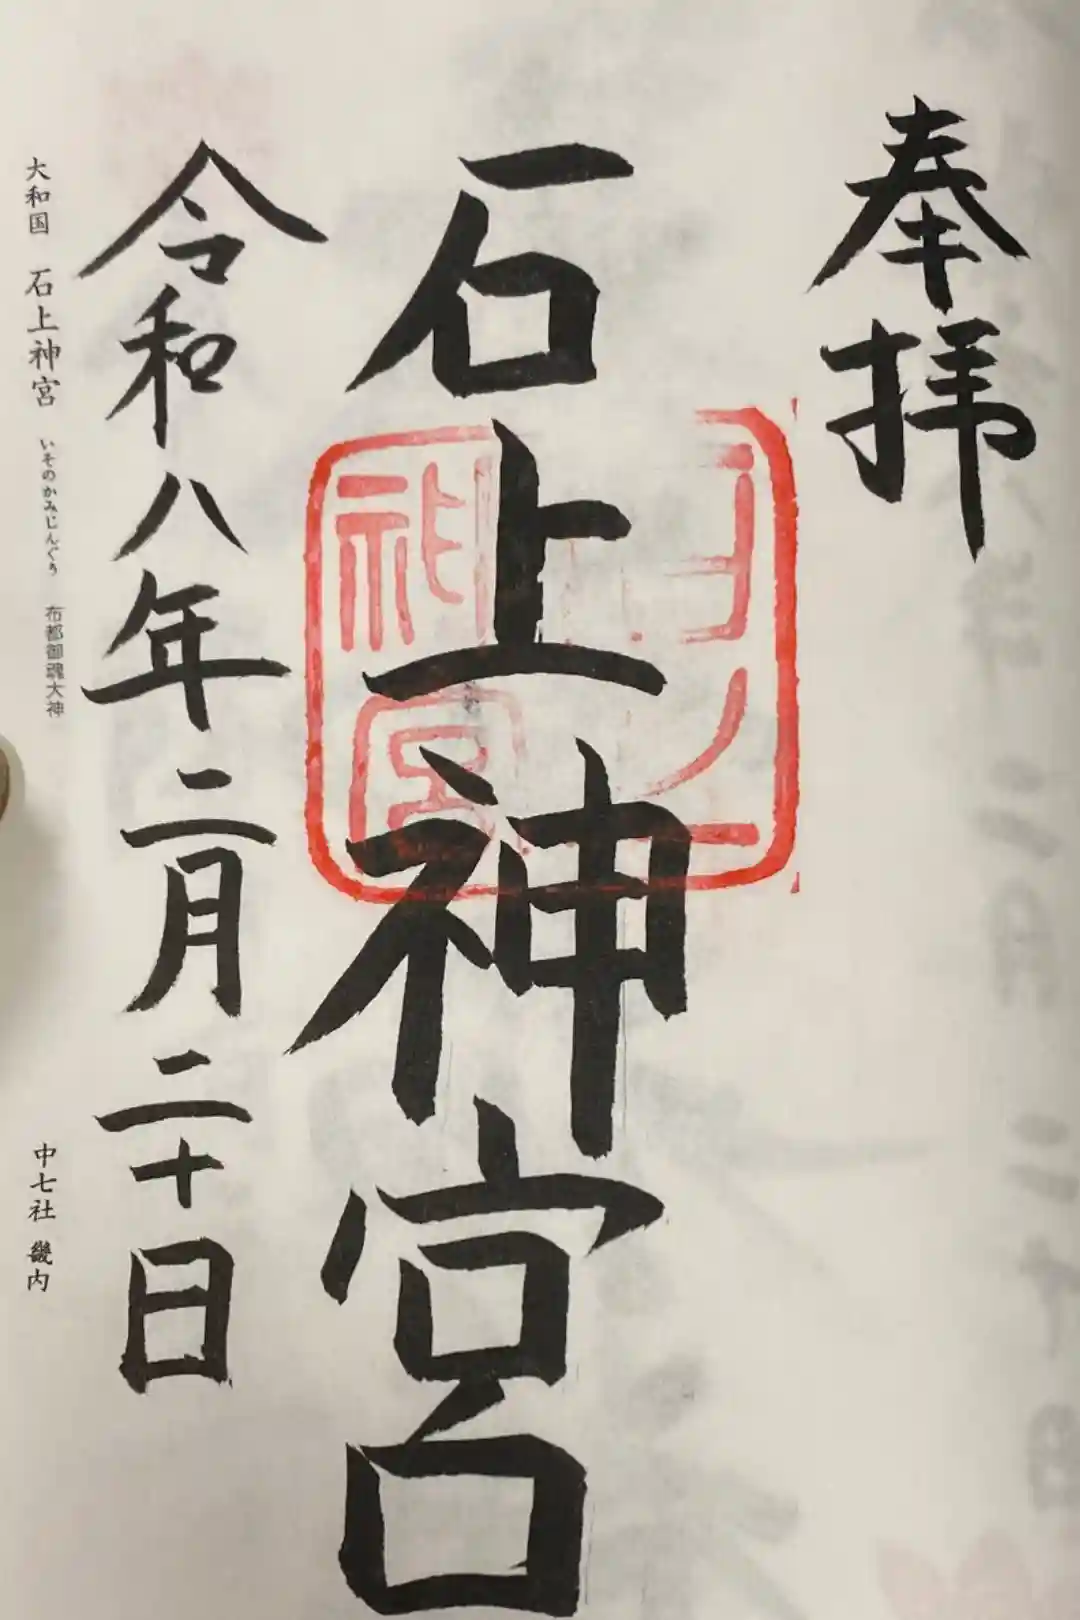 奉拝
石上神宮
令和八年二月二十日
大和国 石上神宮 いそのかみじんぐう 布都御魂大神
中七社 畿内